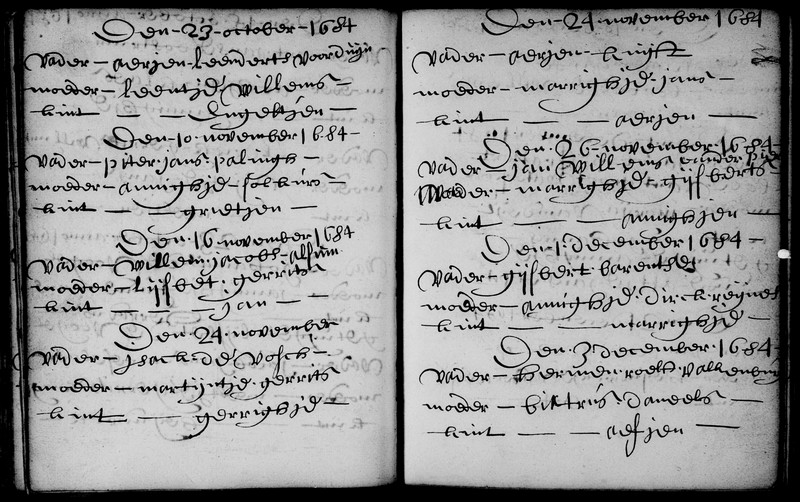 Den 23 october 1684
vader – aerjen leenderts voordijn
moeder – leentjd willems –
kint – – Engeltjen –
Den 10 november 1684 –
vader – piter jans palingh –
moeder – annighjd folkurs –
kint – – grietjen –
Den 16 november 1684
vader – willem jacobs
moeder – lijsbet gerrits
kint – – jan –
Den 24 november
vader – jsack de vosch –
moeder – martijntjd gerrits
kint – – gerrighjd –
Den 24 november 1684
vader – aerjen
moeder – marrighjd jans –
kint – – aerjen –
Den 26 november 1684
vader – jan willems vander
moeder – marrighjd gijsberts
kint – – annighjen –
Den 1 december 1684 –
vader – gijsbert barents
moeder – annighjd dirck
kint – – marrighjd –
Den 3 december 1684
vader – hermen roelt
moeder – bittrus daneels –
kint – – aefjen –